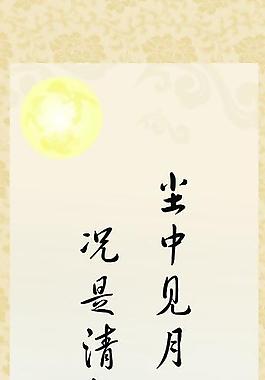 尘中见月
况是清